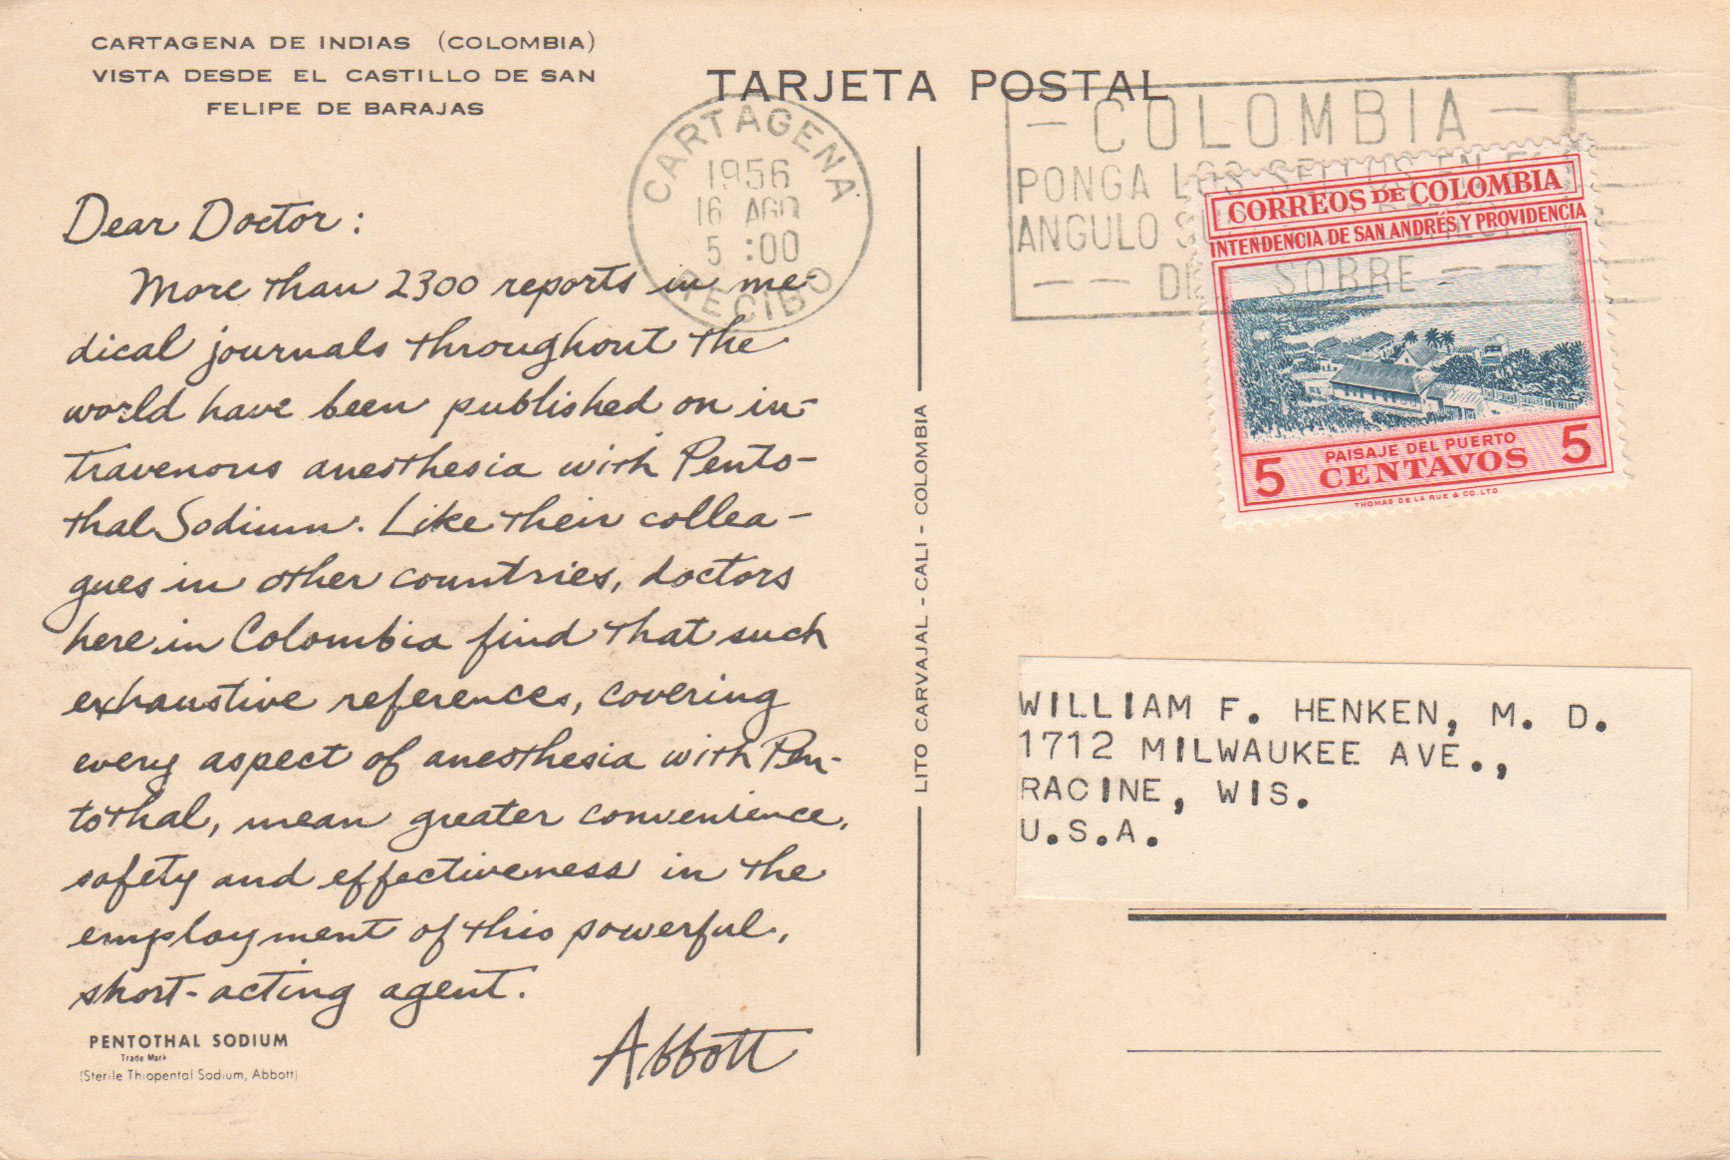 CARTAGENA DE INDIAS (COLOMBIA)
VISTA DESDE EL CASTILLO DE SAN
FELIPE DE BARAJAS
TARJETA POSTAL
CARTAGENA
1956
16 AGO
5 :00
RECIBO
- COLOMBIA -
PONGA LOS SELLOS EN EL
ANGULO
SOBRE
CORREOS DE COLOMBIA
INTENDENCIA DE SAN ANDRÉS Y PROVIDENCIA
PAISAJE DEL PUERTO
5 CENTAVOS 5
THOMAS DE LA RUE & CO. LTD.
Dear Doctor:
More than 2300 reports in me-
dical journals throughout the
world have been published on in-
travenous anesthesia with Pento-
thal Sodium. Like their collea-
gues in other countries, doctors
here in Colombia find that such
exhaustive references, covering
every aspect of anesthesia with Pen-
tothal, mean greater convenience,
safety and effectiveness in the
employment of this powerful,
short-acting agent.
Abbott
PENTOTHAL SODIUM
Trade Mark
(Sterile Thiopental Sodium, Abbott)
LITO CARVAJAL - CALI - COLOMBIA
WILLIAM F. HENKEN, M. D.
1712 MILWAUKEE AVE.,
RACINE, WIS.
U.S.A.